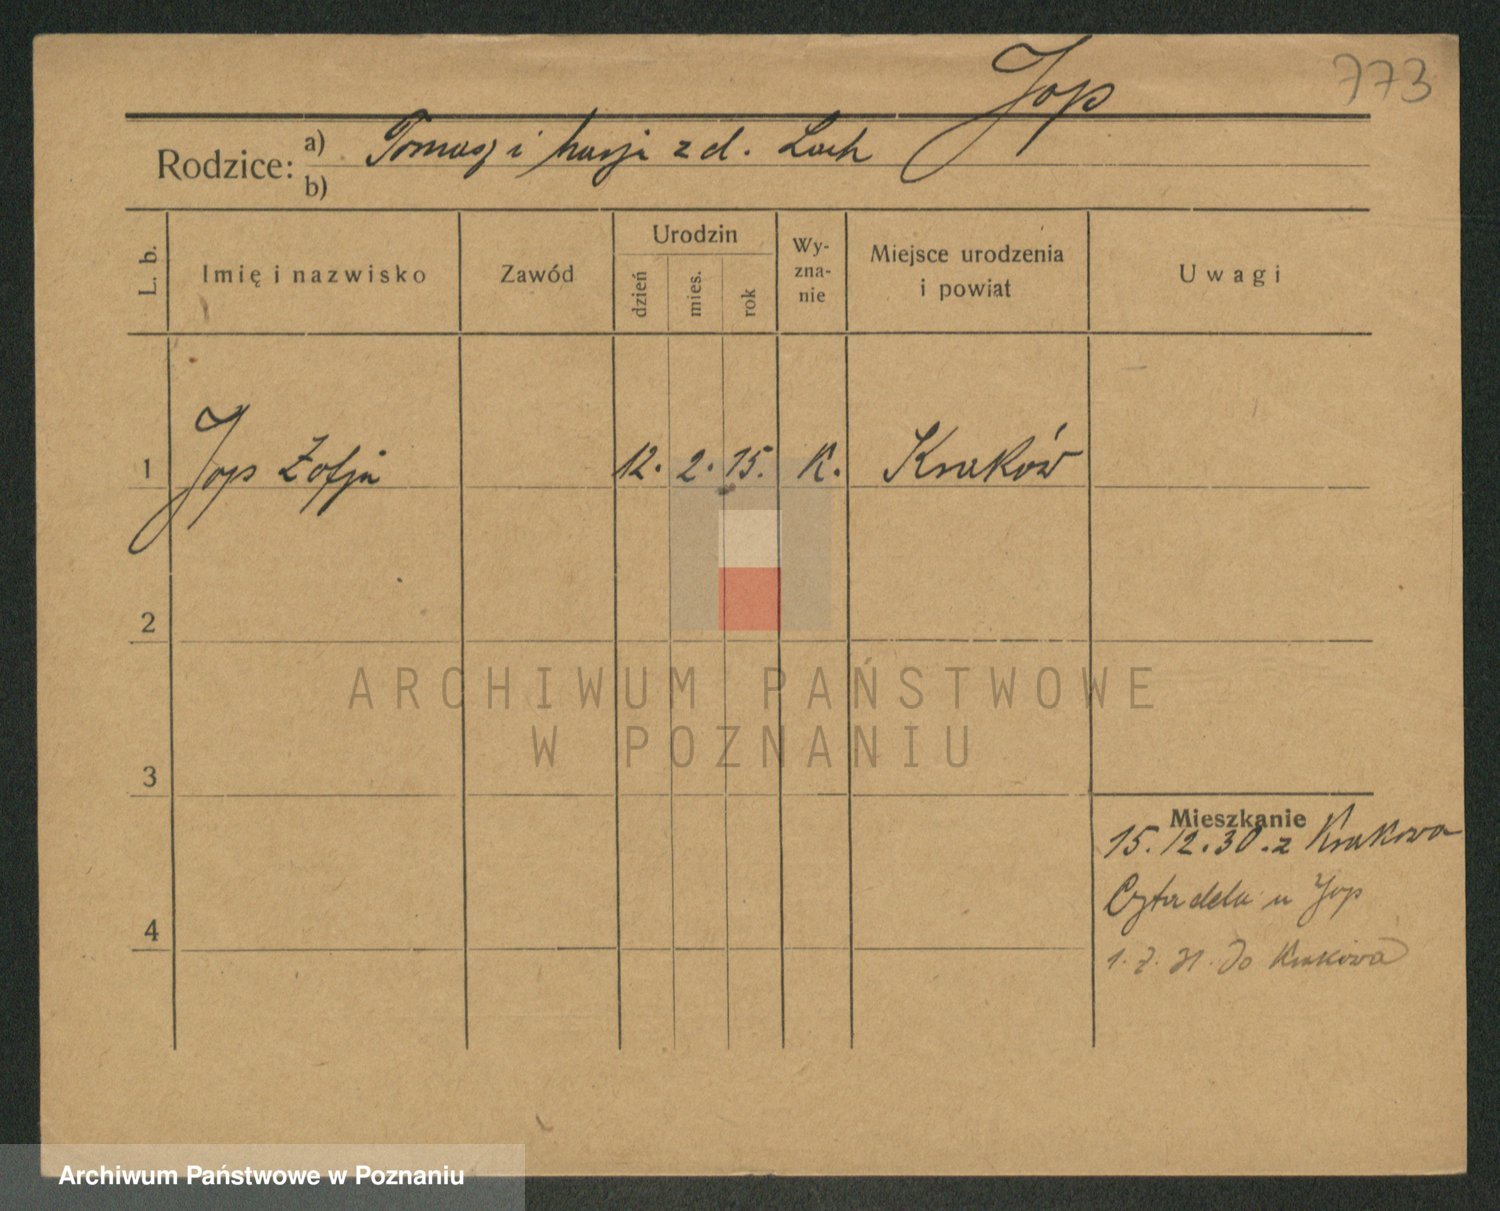 Jop
773
Rodzice: a) Tomasz i Marji z d. Lach
b)
L. b.
Imię i nazwisko
Zawód
Urodzin
dzień
mies.
rok
Wy-
zna-
nie
Miejsce urodzenia
i powiat
Uwagi
1 Jop Zofja 12. 2. 15. K. Kraków
2
3
4
Mieszkanie
15.12.30. z Krakowa
Cytadela u Jop
1. 7. 31. do Krakowa
ARCHIWUM PAŃSTWOWE
W POZNANIU
Archiwum Państwowe w Poznaniu